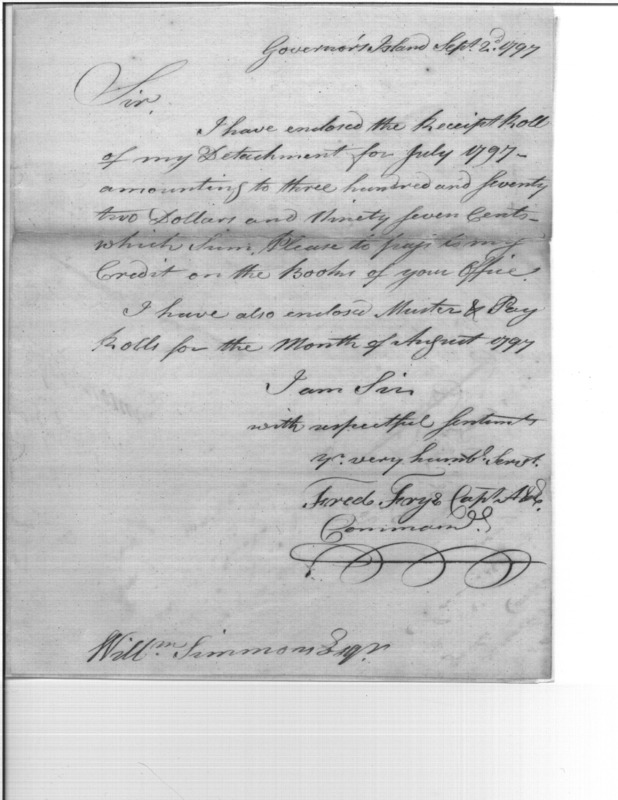 Governor's Island Sept. 2d. 1797
Sir.
I have enclosed the Receipt Roll
of my Detachment for July 1797-
amounting to three hundred and seventy
two Dollars and Ninety seven Cents-
which Sum Please to pass to my
Credit on the Books of your Office.
I have also enclosed Muster & Pay
Rolls for the Month of August 1797
I am Sir
with respectful Sentimts
yr. very humbe. Servt.
Fred. Frye Capt. A&E.
Commandg
Willm Simmons Esqr.